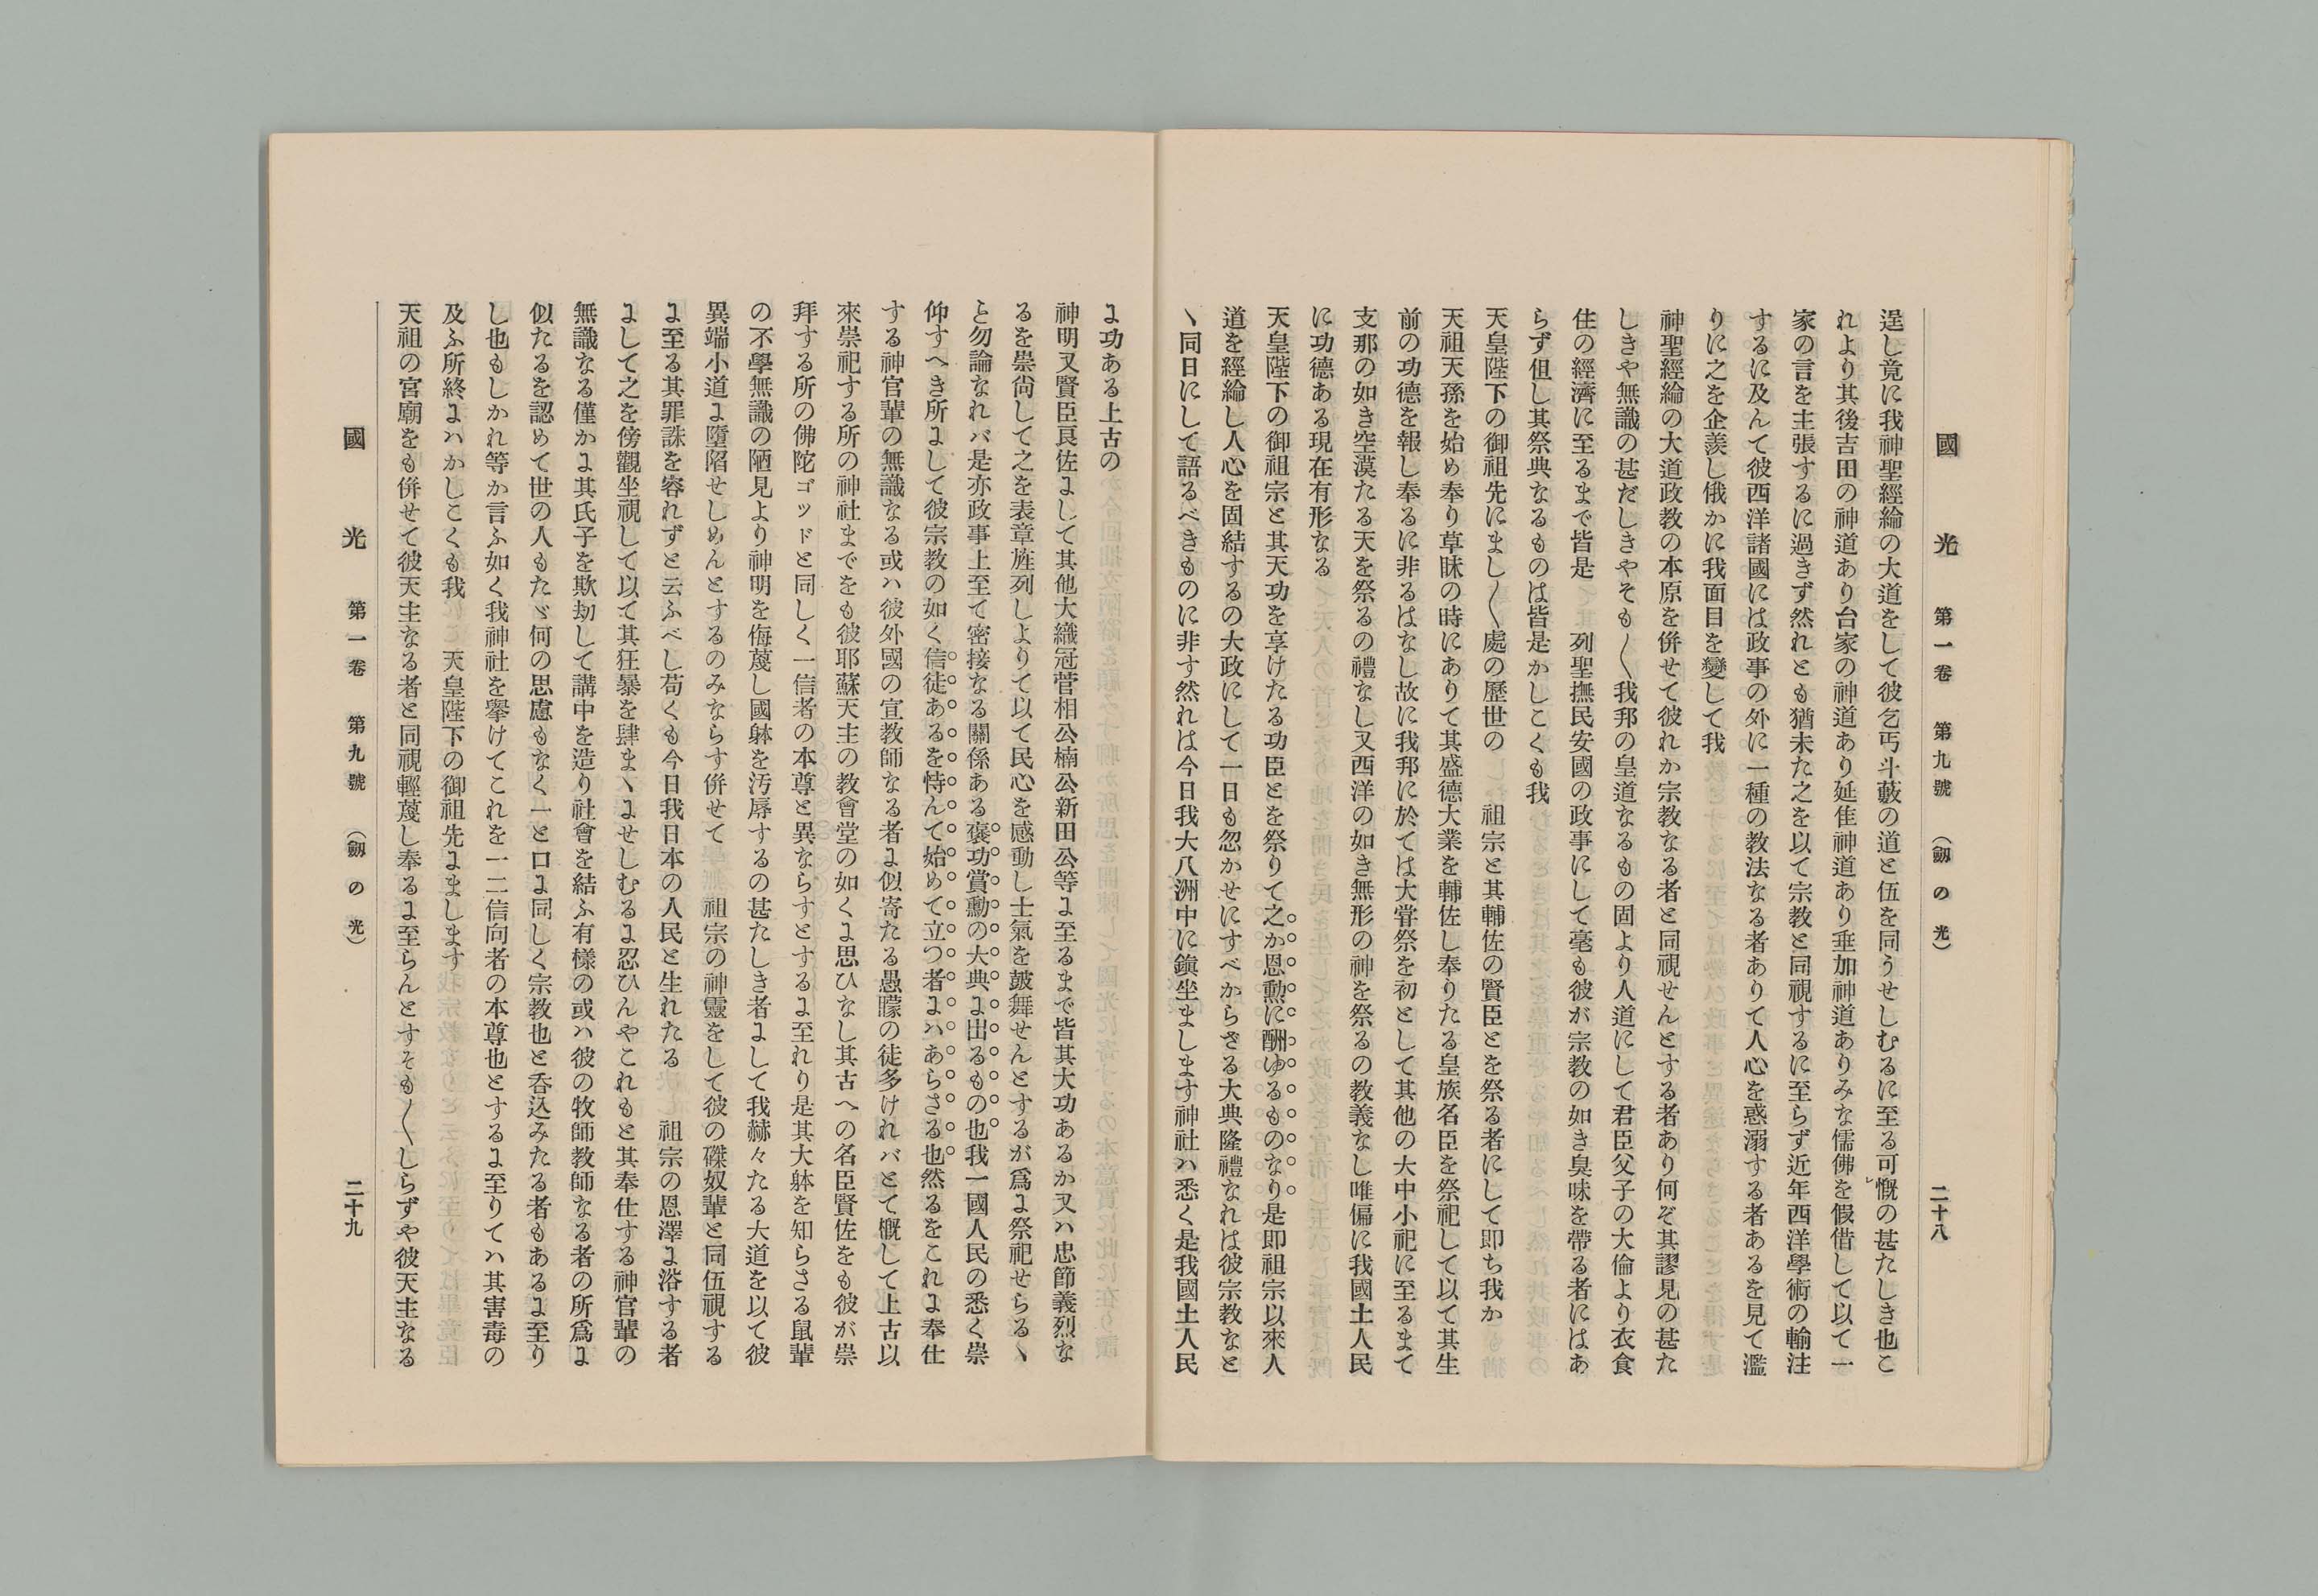 國光 第一卷 第九號 (劔の光) 二十八
逞し竟に我神聖經綸の大道をして彼乞丐斗藪の道と伍を同うせしむるに至る可慨の甚たしき也こ
れより其後吉田の神道あり台家の神道あり延隹神道あり垂加神道ありみな儒佛を假借して以て一
家の言を主張するに過きず然れとも猶未た之を以て宗教と同視するに至らず近年西洋學術の輸注
するに及んて彼西洋諸國には政事の外に一種の教法なる者ありて人心を惑溺する者あるを見て濫
りに之を企羨し俄かに我面目を變して我
神聖經綸の大道政教の本原を併せて彼れか宗教なる者と同視せんとする者あり何ぞ其謬見の甚た
しきや無識の甚だしきやそも〳〵我邦の皇道なるもの固より人道にして君臣父子の大倫より衣食
住の經濟に至るまで皆是 列聖撫民安國の政事にして毫も彼が宗教の如き臭味を帶る者にはあ
らず但し其祭典なるものは皆是かしこくも我
天皇陛下の御祖先にまし〳〵處の歷世の 祖宗と其輔佐の賢臣とを祭る者にして即ち我か
天祖天孫を始め奉り草昧の時にありて其盛德大業を輔佐し奉りたる皇族名臣を祭祀して以て其生
前の功德を報し奉るに非るはなし故に我邦に於ては大甞祭を初として其他の大中小祀に至るまて
支那の如き空漠たる天を祭るの禮なし又西洋の如き無形の神を祭るの教義なし唯偏に我國土人民
に功德ある現在有形なる
天皇陛下の御祖宗と其天功を享けたる功臣とを祭りて之か恩勳に酬ゆるものなり是即祖宗以來人
道を經綸し人心を固結するの大政にして一日も忽かせにすべからざる大典隆禮なれは彼宗教なと
ヽ同日にして語るべきものに非す然れは今日我大八洲中に鎭坐まします神社ハ悉く是我國土人民
に功ある上古の
神明又賢臣良佐にして其他大織冠菅相公楠公新田公等に至るまで皆其大功あるか又ハ忠節義烈な
るを崇尙して之を表章旌列しよりて以て民心を感動し士氣を皷舞せんとするが爲に祭祀せらるヽ
と勿論なれバ是亦政事上至て密接なる關係ある褒功賞勳の大典に出るもの也我一國人民の悉く崇
仰すへき所にして彼宗教の如く信徒あるを恃んて始めて立つ者にハあらさる也然るをこれに奉仕
する神官輩の無識なる或ハ彼外國の宣教師なる者に似寄たる愚矇の徒多けれバとて槪して上古以
來崇祀する所の神社までをも彼耶蘇天主の教會堂の如くに思ひなし其古への名臣賢佐をも彼が崇
拜する所の佛陀ゴッドと同しく一信者の本尊と異ならすとするに至れり是其大躰を知らさる鼠輩
の不學無識の陋見より神明を侮蔑し國躰を汚辱するの甚たしき者にして我赫々たる大道を以て彼
異端小道に墮陷せしめんとするのみならす併せて 祖宗の神靈をして彼の磔奴輩と同伍視する
に至る其罪誅を容れずと云ふべし苟くも今日我日本の人民と生れたる 祖宗の恩澤に浴する者
にして之を傍觀坐視して以て其狂暴を肆まヽにせしむるに忍ひんやこれもと其奉仕する神官輩の
無識なる僅かに其氏子を欺劫して講中を造り社會を結ふ有樣の或ハ彼の牧師教師なる者の所爲に
似たるを認めて世の人もたゞ何の思慮もなく一と口に同しく宗教也と呑込みたる者もあるに至り
し也もしかれ等か言ふ如く我神社を擧けてこれを一二信向者の本尊也とするに至りてハ其害毒の
及ふ所終にハかしこくも我 天皇陛下の御祖先にまします
天祖の宮廟をも併せて彼天主なる者と同視輕蔑し奉るに至らんとすそも〳〵しらずや彼天主なる
國光 第一卷 第九號 (劔の光) 二十九